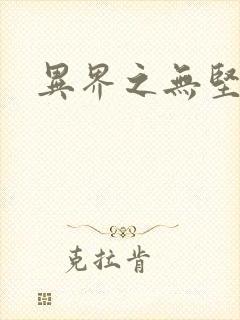 異界之無堅
克拉肯